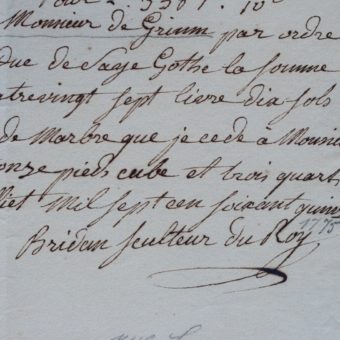 Monsieur de Grimm par ordre
Duc de Saxe Gothe la somme
atrevingt sept livre dix sols
de Marbre que je cede à Monsie
onze pieds cube et trois quart
llet Mil sept cen soixant quin
1775
Bridan sculteur du Roy